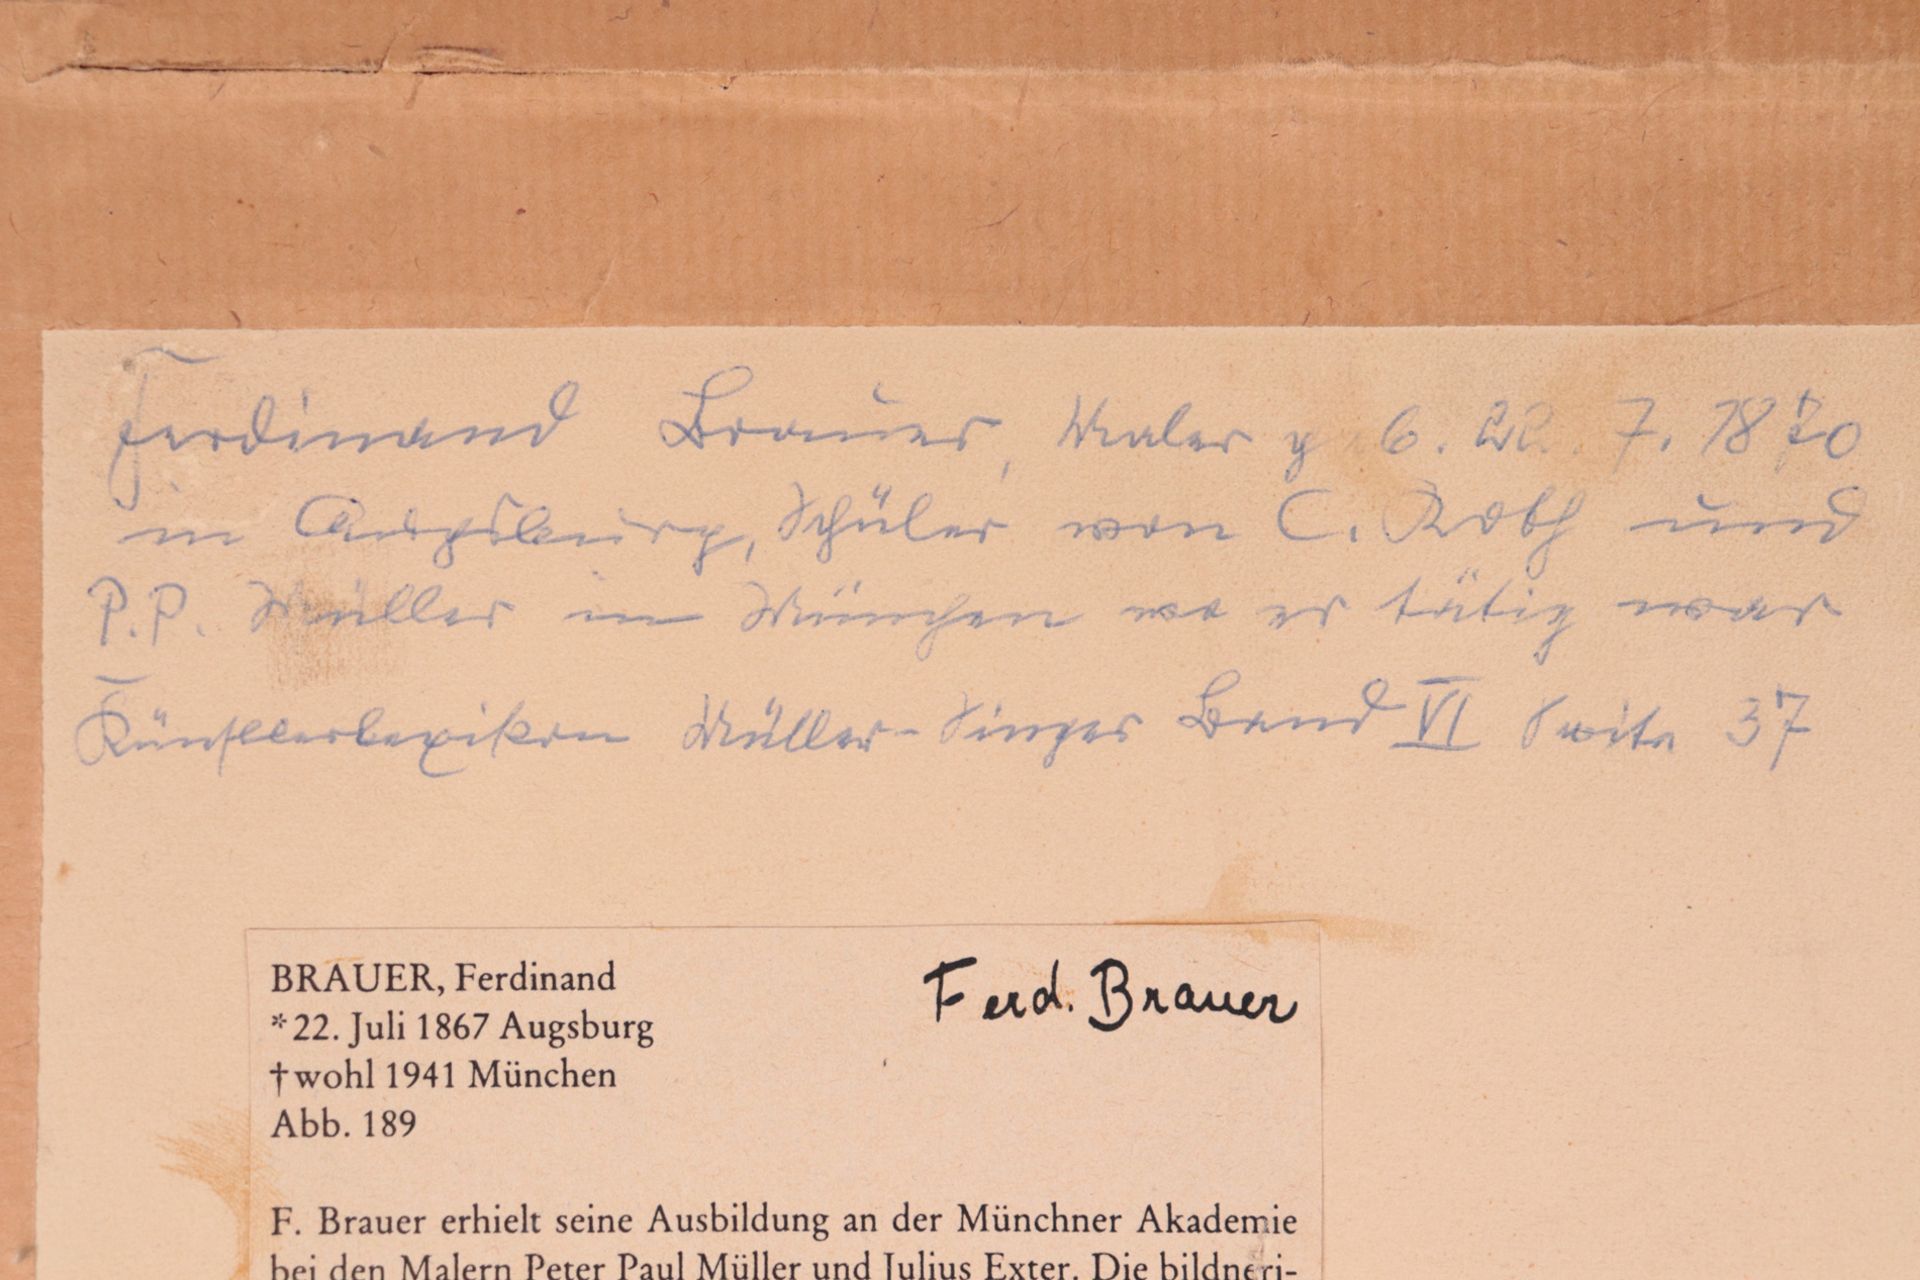 Ferdinand Brauer, Maler geb. 22. 7. 1870
in Augsburg, Schüler von C. Roth und
P.P. Müller in München wo er tätig war
Künstlerlexikon Müller-Singer Band VI Seite 37
BRAUER, Ferdinand
Ferd. Brauer
*22. Juli 1867 Augsburg
†wohl 1941 München
Abb. 189
F. Brauer erhielt seine Ausbildung an der Münchner Akademie
bei den Malern Peter Paul Müller und Julius Exter. Die bildneri-